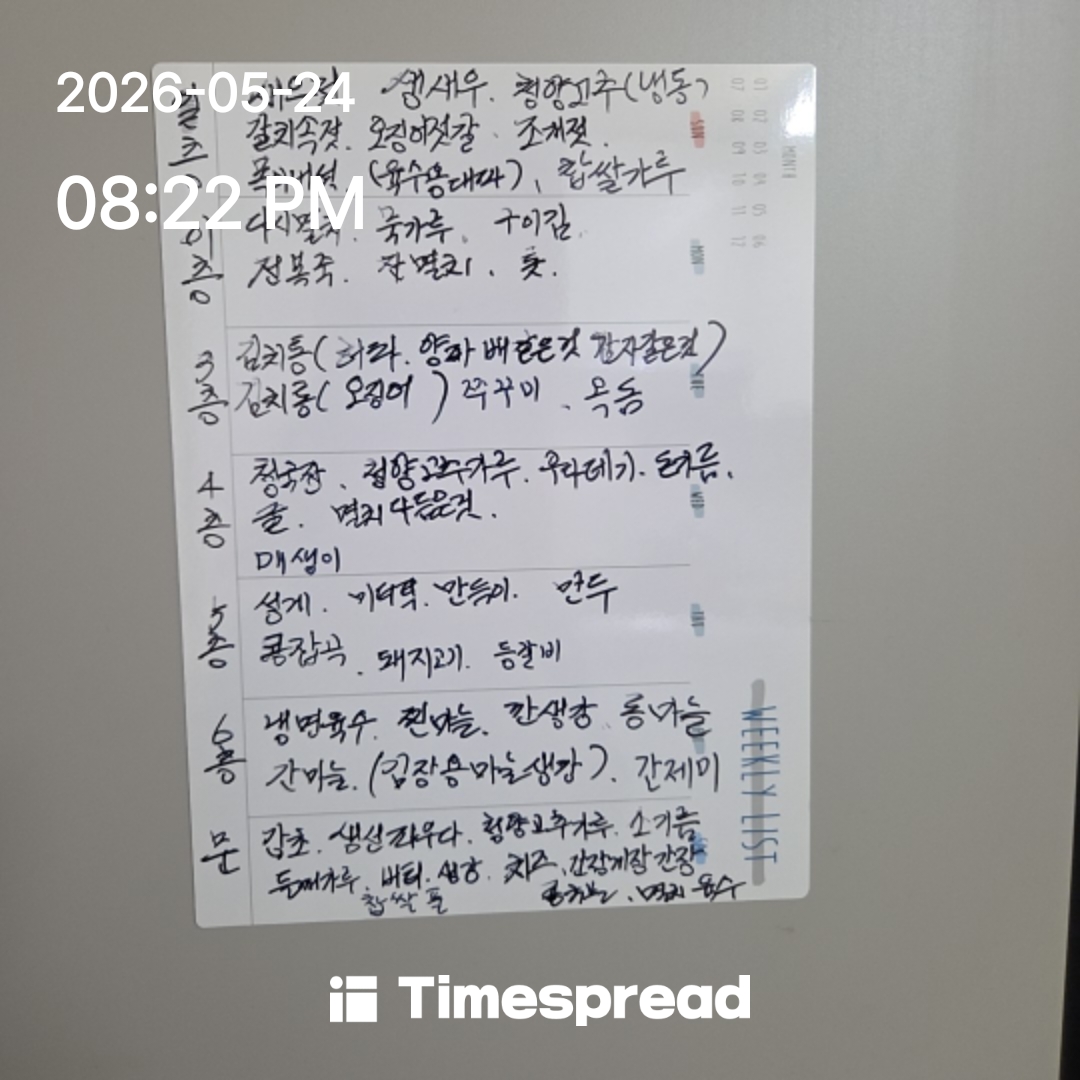 2026-05-24
08:22 PM
생새우. 청양고추(냉동)
갈치속젓. 오징어젓갈. 조개젓.
(육수용대파), 찹쌀가루
이층
묵가루. 구이김.
전복죽. 잔멸치. 톳.
3층
김치통(
김치통(오징어) 쭈꾸미. 옥돔
4층
청국장. 청양고추가루.
굴. 멸치다듬은것.
매생이
5층
성게. 만두
콩잡곡. 돼지고기. 등갈비
6층
냉면육수. 찐마늘. 깐생강. 통마늘
간마늘. (김장용마늘생강). 간제미
문
감초. 청양고추가루.
들깨가루. 버터. 생강. 치즈. 간장게장간장
찹쌀풀
멸치육수
MONTH
01 02 03 04 05 06
07 08 09 10 11 12
SUN
MON
WED
WEEKLY LIST
Timespread